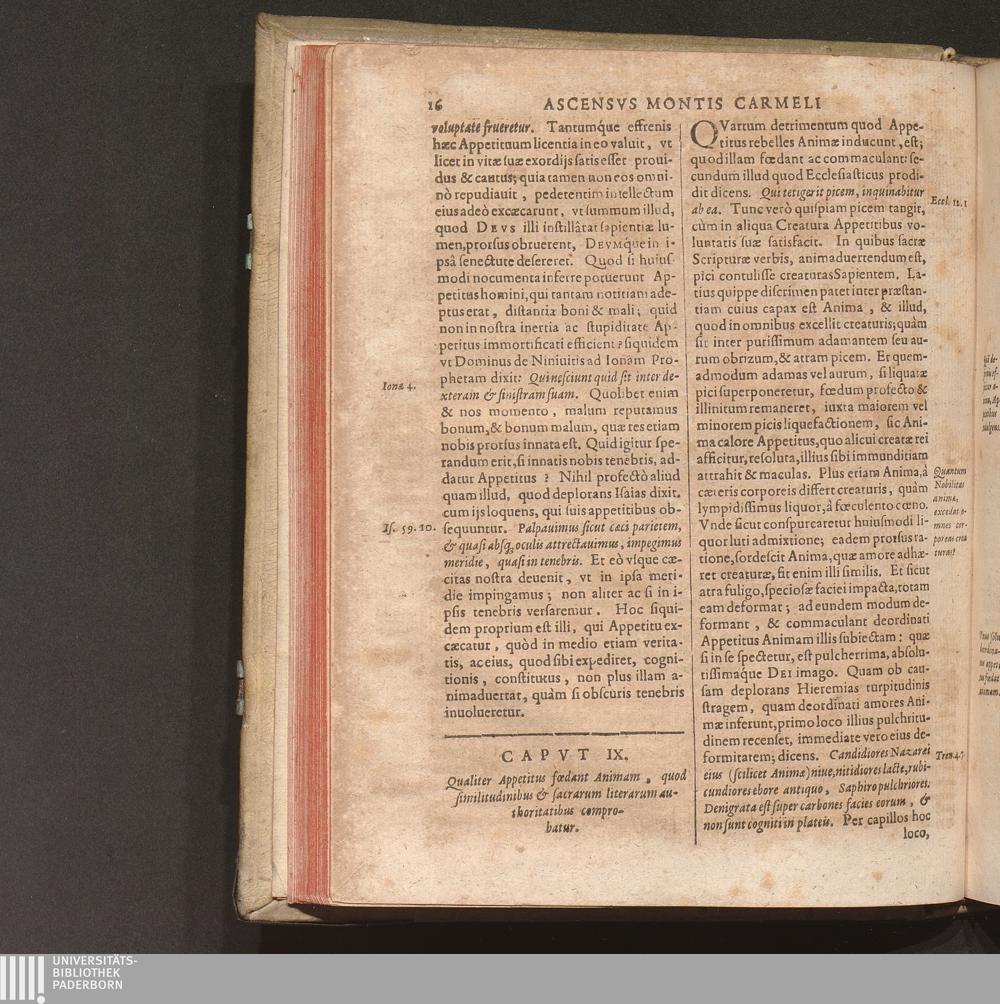 16
ASCENSVS MONTIS CARMELI
voluptate frueretur. Tantumque effrenis
hæc Appetituum licentia in eo valuit, vt
licet in vitæ suæ exordijs satis esset proui-
dus & cautus; quia tamen non eos omni-
nò repudiauit, pedetentim intellectum
eius adeò excæcarunt, vt summum illud,
quod DEVS illi instillârat sapientiæ lu-
men, prorsus obtuerent, DEVMque in i-
psâ senectute desereret. Quod si huius-
modi nocumenta inferre potuerunt Ap-
petitus homini, qui tantam notitiam ade-
ptus erat, distantiæ boni & mali; quid
non in nostra inertia ac stupiditate Ap-
petitus immortificati efficient? siquidem
vt Dominus de Niniuitis ad Ionam Pro-
phetam dixit: Qui nesciunt quid sit inter de-
xteram & sinistram suam. Quolibet enim
& nos momento, malum reputamus
bonum, & bonum malum, quæ res etiam
nobis prorsus innata est. Quid igitur spe-
randum erit, si innatis nobis tenebris, ad-
datur Appetitus? Nihil profectò aliud
quam illud, quod deplorans Isaias dixit.
cum ijs loquens, qui suis appetitibus ob-
sequuntur. Palpauimus sicut cæci parietem,
& quasi absq; oculis attrectauimus, impegimus
meridie, quasi in tenebris. Et eò vsque cæ-
citas nostra deuenit, vt in ipsa meri-
die impingamus; non aliter ac si in i-
psis tenebris versaremur. Hoc siqui-
dem proprium est illi, qui Appetitu ex-
cæcatur, quòd in medio etiam verita-
tis, ac eius, quod sibi expediret, cogni-
tionis, constitutus, non plus illam a-
nimaduertat, quàm si obscuris tenebris
inuolueretur.
Ionæ 4.
Is. 59. 10.
CAPVT IX.
Qualiter Appetitus fœdant Animam, quod
similitudinibus & sacrarum literarum au-
thoritatibus compro-
batur.
QVartum detrimentum quod Appe-
titus rebelles Animæ inducunt, est;
quod illam fœdant ac commaculant: se-
cundum illud quod Ecclesiasticus prodi-
dit dicens. Qui tetigerit picem, inquinabitur
ab ea. Tunc verò quispiam picem tangit,
cùm in aliqua Creatura Appetitibus vo-
luntatis suæ satisfacit. In quibus sacræ
Scripturæ verbis, animaduertendum est,
pici contulisse creaturas Sapientem. La-
tius quippe discrimen patet inter præstan-
tiam cuius capax est Anima, & illud,
quod in omnibus excellit creaturis; quàm
sit inter purissimum adamantem seu au-
rum obrizum, & atram picem. Et quem-
admodum adamas vel aurum, si liquatæ
pici superponeretur, fœdum profecto &
illinitum remaneret, iuxta maiorem vel
minorem picis liquefactionem, sic Ani-
ma calore Appetitus, quo alicui creatæ rei
afficitur, resoluta, illius sibi immunditiam
attrahit & maculas. Plus etiam Anima, à
cæteris corporeis differt creaturis, quàm
lympidissimus liquor, à fœculento cœno.
Vnde sicut conspurcaretur huiusmodi li-
quor luti admixtione; eadem prorsus ra-
tione, sordescit Anima, quæ amore adhæ-
ret creaturæ, fit enim illi similis. Et sicut
atra fuligo, speciosæ faciei impacta, totam
eam deformat; ad eundem modum de-
formant, & commaculant deordinati
Appetitus Animam illis subiectam: quæ
si in se spectetur, est pulcherrima, absolu-
tissimaque DEI imago. Quam ob cau-
sam deplorans Hieremias turpitudinis
stragem, quam deordinati amores Ani-
mæ inferunt, primo loco illius pulchritu-
dinem recenset, immediate vero eius de-
formitatem; dicens. Candidiores Nazaræi
eius (scilicet Animæ) niue, nitidiores lacte, rubi-
cundiores ebore antiquo, Saphiro pulchriores.
Denigrata est super carbones facies eorum, &
non sunt cogniti in plateis. Per capillos hoc
loco,
Eccl. 12. 1
Quantum
Nobilitas
animæ,
excedat o-
mnes cor-
poreas crea
turas?
Tren. 4. 7.
UNIVERSITÄTS-
BIBLIOTHEK
PADERBORN